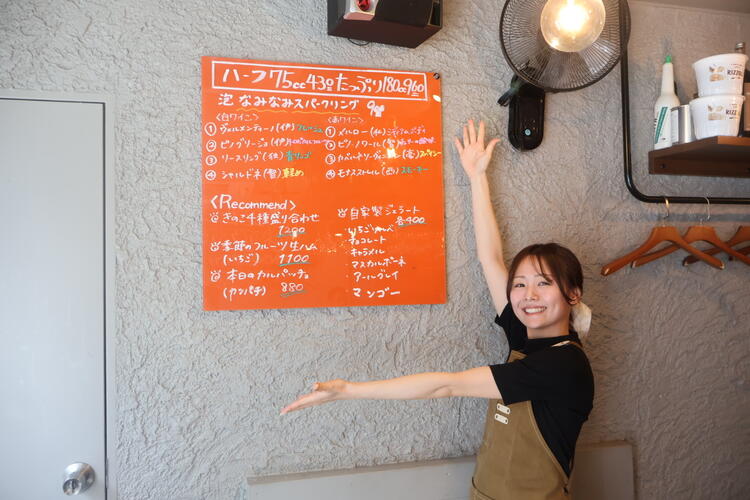 ハーフ75cc430 たっぷり180cc960
泡 なみなみスパークリング 980
〈白ワイン〉
① ヴェルメンティーノ(伊)フレッシュ
② ピノグリージョ(伊)
③ リースリング(独)青リンゴ
④ シャルドネ(智)軽め
〈赤ワイン〉
① メルロー(仏)ミディアムボディ
② ピノノワール
③ カベルネソーヴィ スパイシー
④ モナストレル(西)スモーキー
〈Recommend〉
きのこ4種盛り合わせ
1200
季節のフルーツ生ハム
(いちご) 1100
本日のカルパッチョ
(カンパチ) 880
自家製ジェラート
各400
・いちごみるく
・チョコレート
・キャラメル
・マスカルポーネ
・アールグレイ
・マンゴー
RIZZO